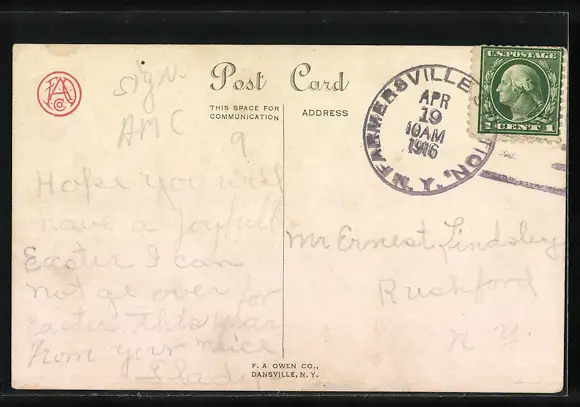 Post Card
THIS SPACE FOR COMMUNICATION
ADDRESS
FARMERSVILLE STATION, N.Y.
APR
19
10AM
1916
U.S. POSTAGE
1 CENT 1
Sign.
AMC
9
Hope you will
have a joyfull
Easter I can
not go over for
Easter this year
from your niece
Mr Ernest Lindsley
Rushford
N. Y.
F. A. OWEN CO.,
DANSVILLE, N. Y.